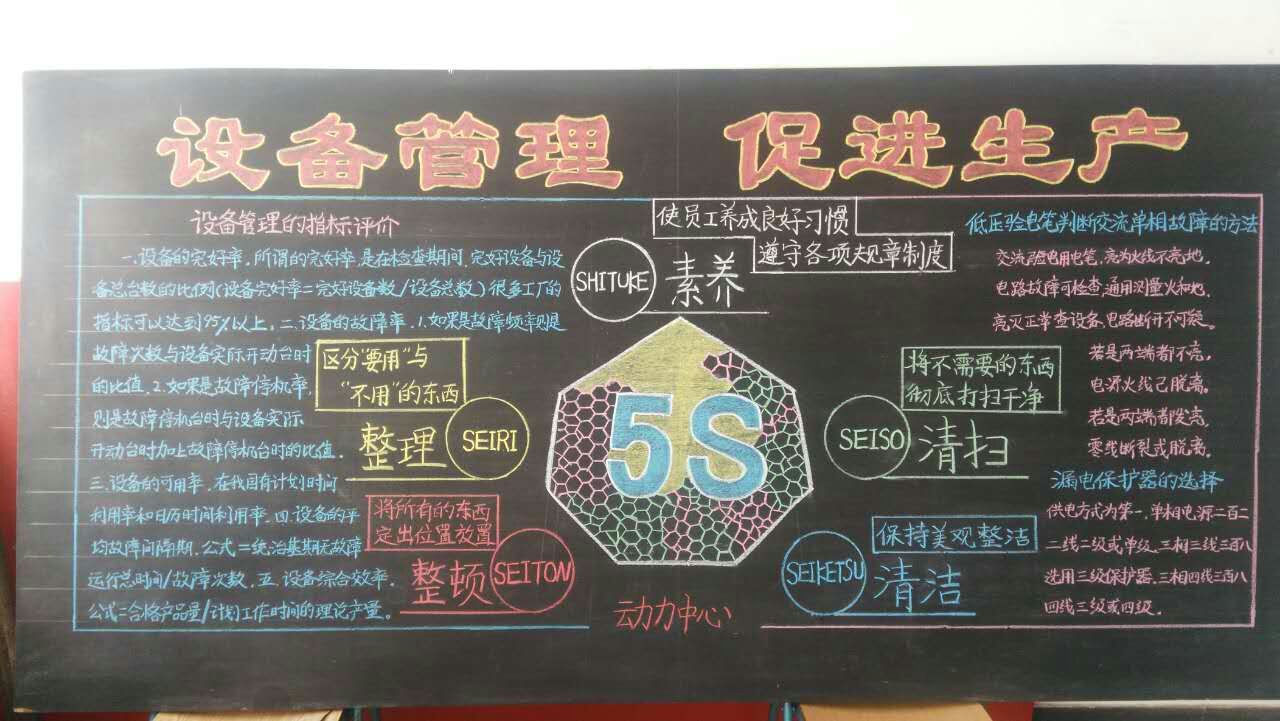 设备管理 促进生产
设备管理的指标评价
一.设备的完好率.所谓的完好率.是在检查期间.完好设备与设
备总台数的比例(设备完好率=完好设备数/设备总数)很多工厂的
指标可以达到95%以上.二.设备的故障率.1.如果是故障频率则是
故障次数与设备实际开动台时
的比值.2.如果是故障停机率.
则是故障停机台时与设备实际
开动台时加上故障停机台时的比值.
三.设备的可用率.在我国有计划时间
利用率和日历时间利用率.四.设备的平
均故障间隔期.公式=统治基期无故障
运行总时间/故障次数.五.设备综合效率.
公式=合格产品量/计划工作时间的理论产量。
使员工养成良好习惯
遵守各项规章制度
SHITUKE 素养
区分"要用"与
"不用"的东西
整理 SEIRI
将所有的东西
定出位置放置
整顿 SEITON
5S
将不需要的东西
彻底打扫干净
SEISO 清扫
保持美观整洁
SEIKETSU 清洁
动力中心
低压验电笔判断交流单相故障的方法
交流验电用电笔,亮为火线不亮地.
电路故障可检查,通用测量火和地.
亮灭正常查设备,电路断开不可疑。
若是两端都不亮,
电源火线已脱离。
若是两端都发亮,
零线断裂或脱离。
漏电保护器的选择
供电方式为第一,单相电源二百二
二线二级或单级、三相三线三百八
选用三级保护器.三相四线三百八
四线三级或四级.